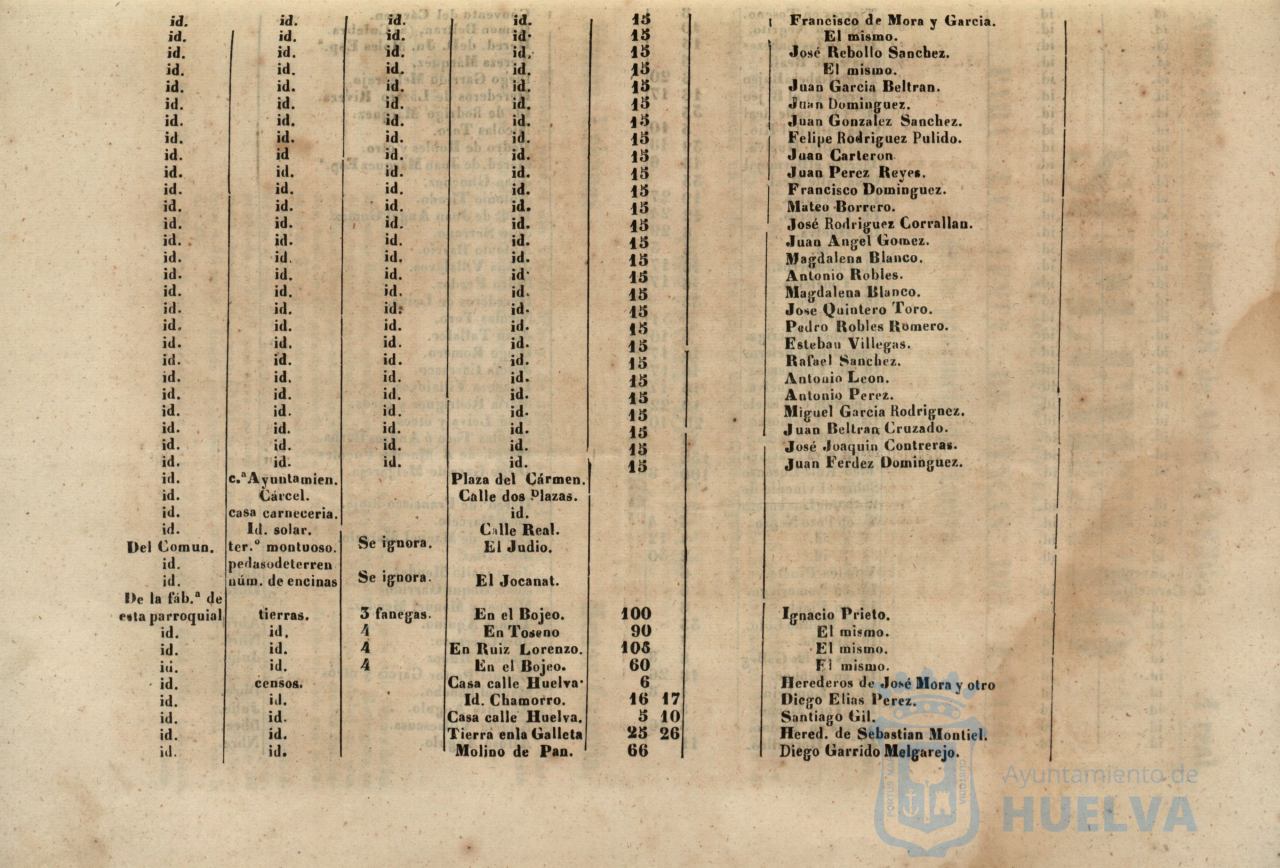 id. id. id. id. 15 Francisco de Mora y Garcia.
id. id. id. id. 15 El mismo.
id. id. id. id. 15 José Rebollo Sanchez.
id. id. id. id. 15 El mismo.
id. id. id. id. 15 Juan Garcia Beltran.
id. id. id. id. 15 Juan Dominguez.
id. id. id. id. 15 Juan Gonzalez Sanchez.
id. id. id. id. 15 Felipe Rodriguez Pulido.
id. id id. id. 15 Juan Carteron
id. id. id. id. 15 Juan Perez Reyes.
id. id. id. id. 15 Francisco Dominguez.
id. id. id. id. 15 Mateo Borrero.
id. id. id. id. 15 José Rodriguez Corrallan.
id. id. id. id. 15 Juan Angel Gomez.
id. id. id. id. 15 Magdalena Blanco.
id. id. id. id. 15 Antonio Robles.
id. id. id. id. 15 Magdalena Blanco.
id. id. id. id. 15 Jose Quintero Toro.
id. id. id. id. 15 Pedro Robles Romero.
id. id. id. id. 15 Esteban Villegas.
id. id. id. id. 15 Rafael Sanchez.
id. id. id. id. 15 Antonio Leon.
id. id. id. id. 15 Antonio Perez.
id. id. id. id. 15 Miguel Garcia Rodriguez.
id. id. id. id. 15 Juan Beltran Cruzado.
id. id. id. id. 15 José Joaquin Contreras.
id. id. id. id. 15 Juan Ferdez Dominguez.
id. c.ª Ayuntamien. Plaza del Cármen.
id. Cárcel. Calle dos Plazas.
id. casa carneceria. id.
id. Id. solar. Calle Real.
Del Comun. ter.º montuoso. Se ignora. El Judio.
id. pedasodeterren
id. núm. de encinas Se ignora. El Jocanat.
De la fáb.ª de
esta parroquial tierras. 3 fanegas. En el Bojeo. 100 Ignacio Prieto.
id. id. 4 En Toseno 90 El mismo.
id. id. 4 En Ruiz Lorenzo. 105 El mismo.
id. id. 4 En el Bojeo. 60 El mismo.
id. censos. Casa calle Huelva. 6 Herederos de José Mora y otro
id. id. Id. Chamorro. 16 17 Diego Elias Perez.
id. id. Casa calle Huelva. 5 10 Santiago Gil.
id. id. Tierra enla Galleta 25 26 Hered. de Sebastian Montiel.
id. id. Molino de Pan. 66 Diego Garrido Melgarejo.
Ayuntamiento de
HUELVA